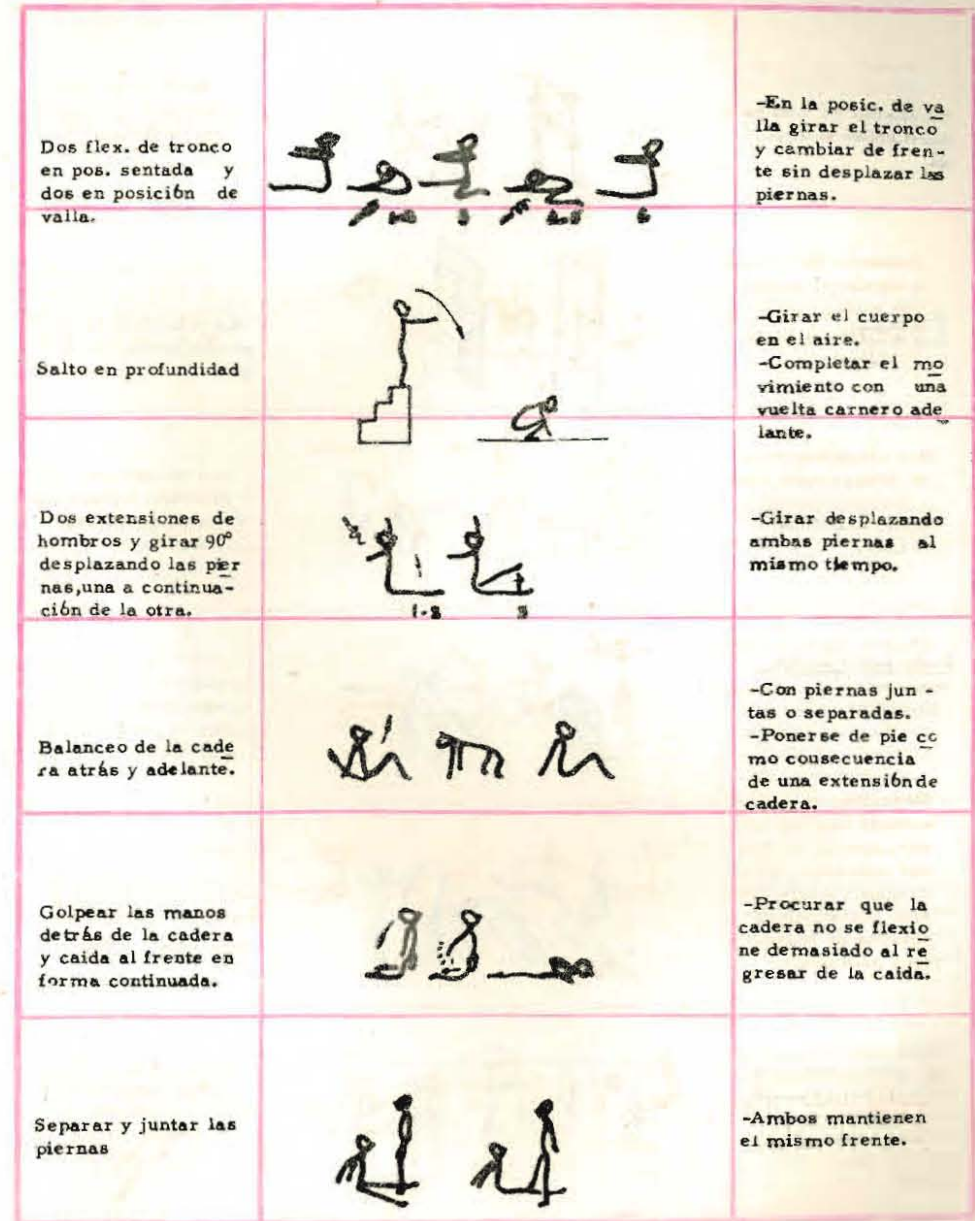 Dos flex. de tronco
en pos. sentada y
dos en posición de
valla.
3
6
-En la posic. de va
lla girar el tronco
y cambiar de fren-
te sin desplazar las
piernas.
Salto en profundidad
-Girar el cuerpo
en el aire.
-Completar el mo
vimiento con una
vuelta carnero ade
lante.
Dos extensiones de
hombros y girar 90°
desplazando las pier
nas,una a continua-
ción de la otra.
1-2
3
-Girar desplazando
ambas piernas al
mismo tiempo.
Balanceo de la cade
ra atrás y adelante.
-Con piernas jun -
tas o separadas.
-Ponerse de pie co
mo cousecuencia
de una extensión de
cadera.
Golpear las manos
detrás de la cadera
y caida al frente en
forma continuada.
-Procurar que la
cadera no se flexio
ne demasiado al re
gresar de la caida.
Separar y juntar las
piernas
-Ambos mantienen
el mismo frente.